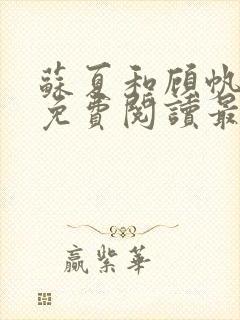 蘇夏和顧帆
免費閱讀最
贏紫華